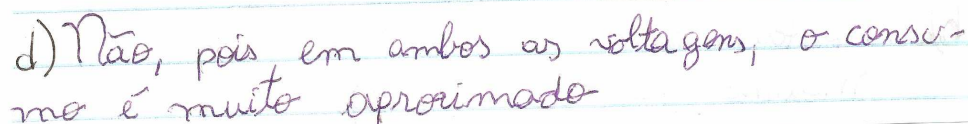 d) Não, pois em ambos as voltagens, o consu-
mo é muito aproximado